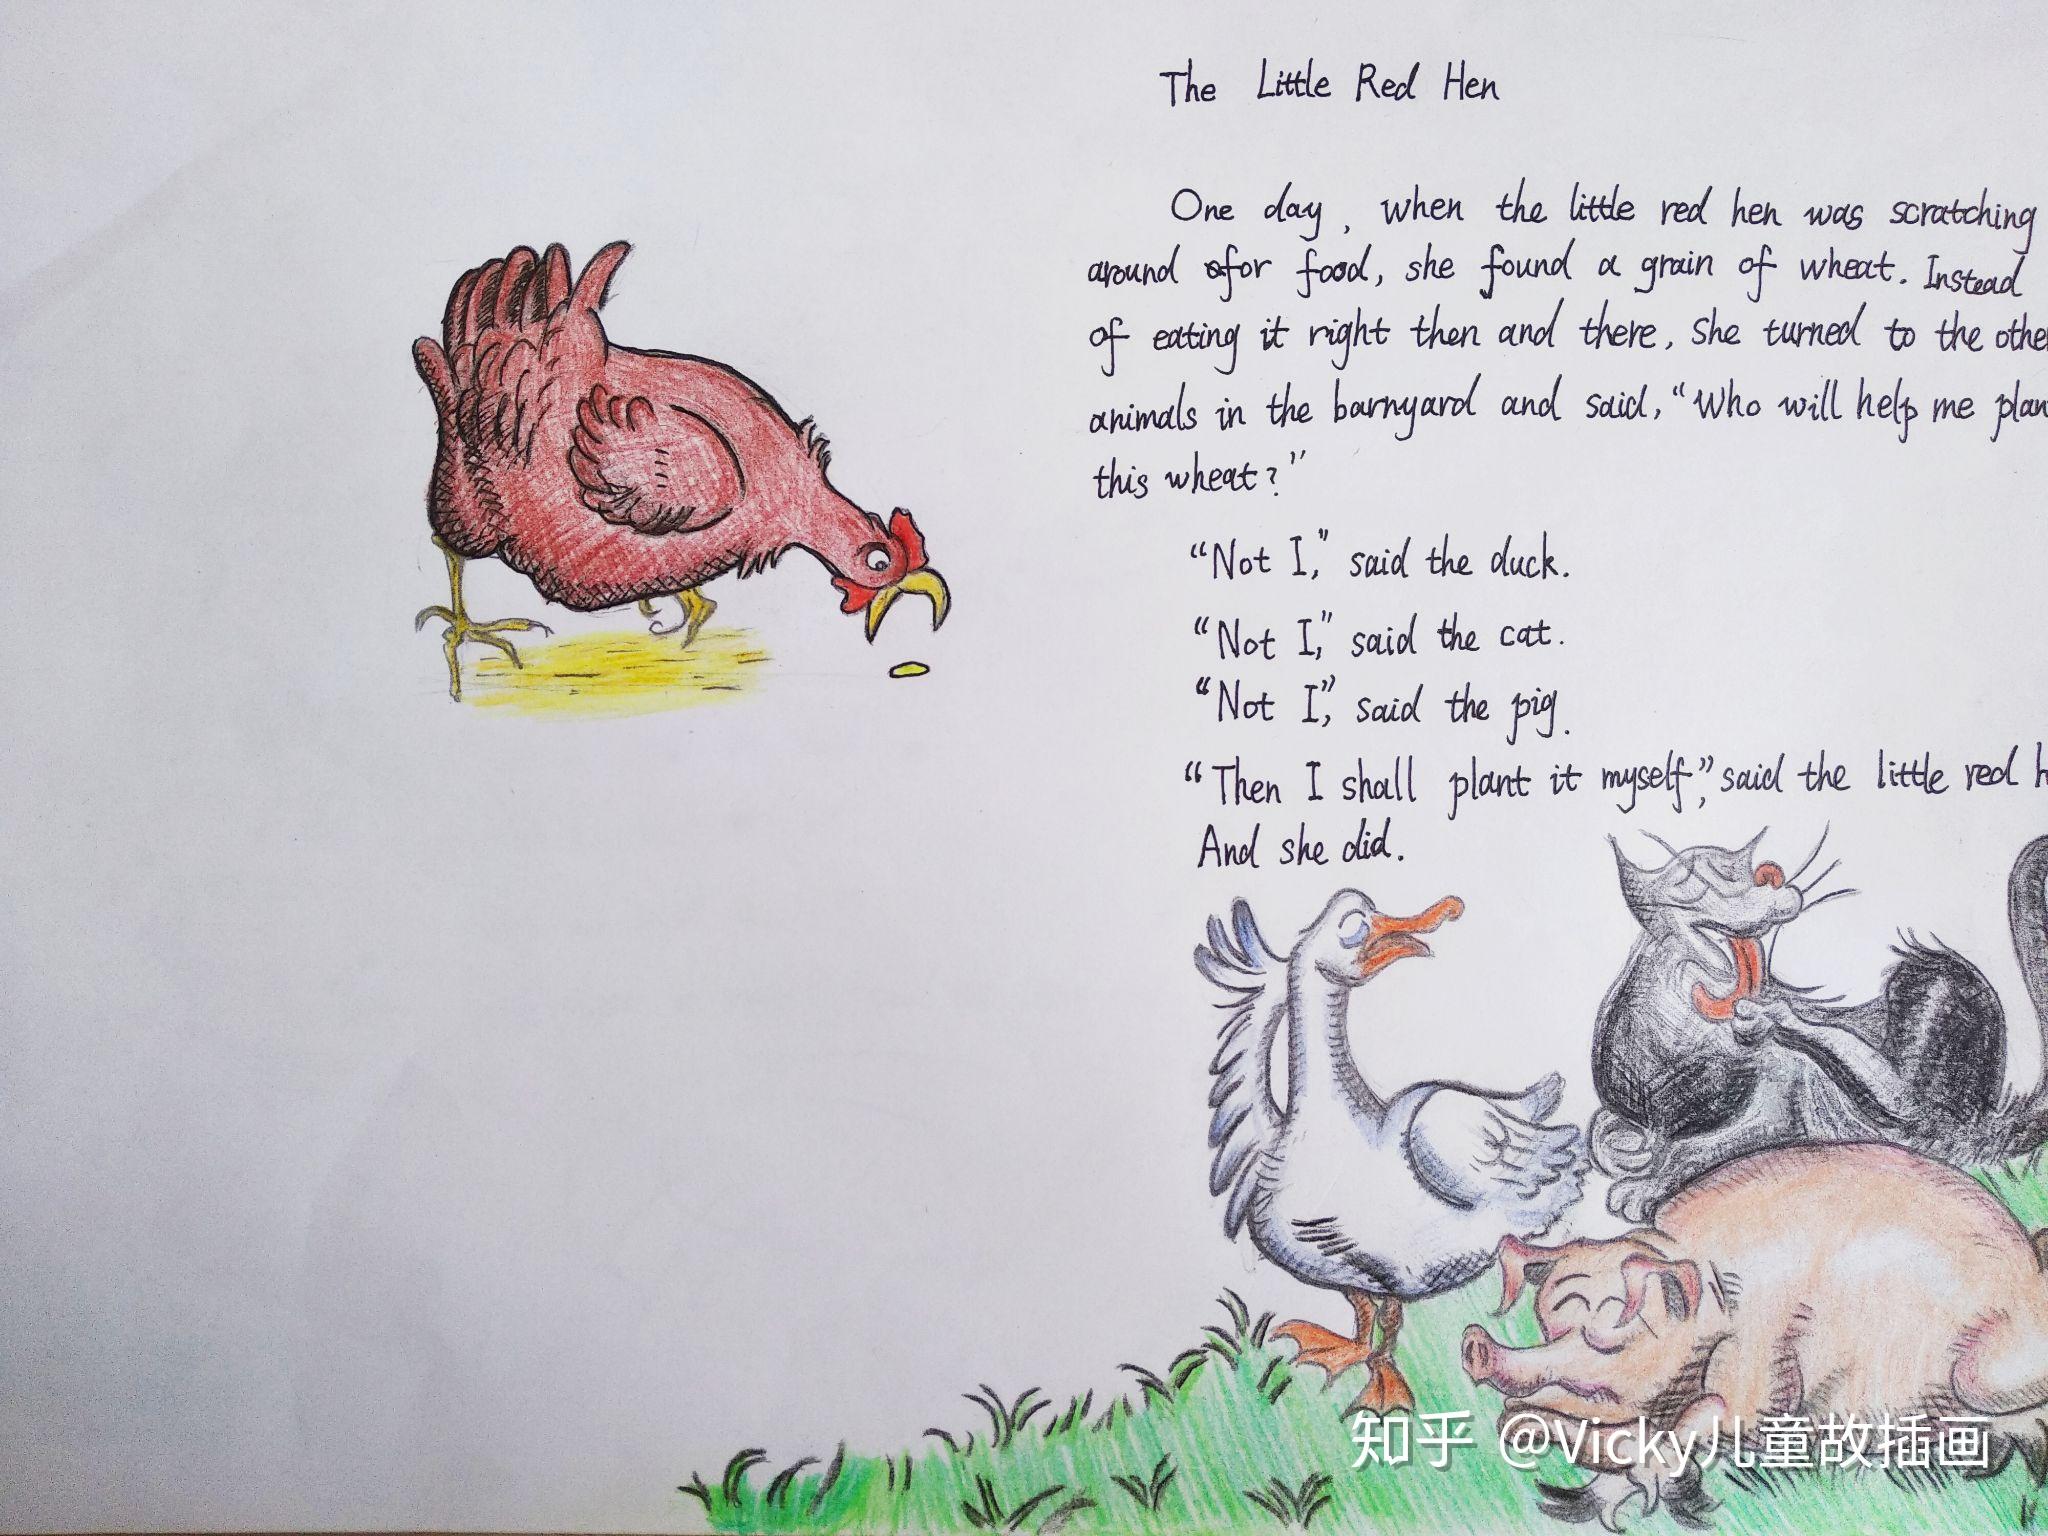 The Little Red Hen
One day, when the little red hen was scratching
around for food, she found a grain of wheat. Instead
of eating it right then and there, She turned to the
animals in the barnyard and said, "Who will help me
this wheat?"
"Not I," said the duck.
"Not I," said the cat.
"Not I", said the pig.
"Then I shall plant it myself", said the little red
And she did.
知乎 @Vicky儿童故插画